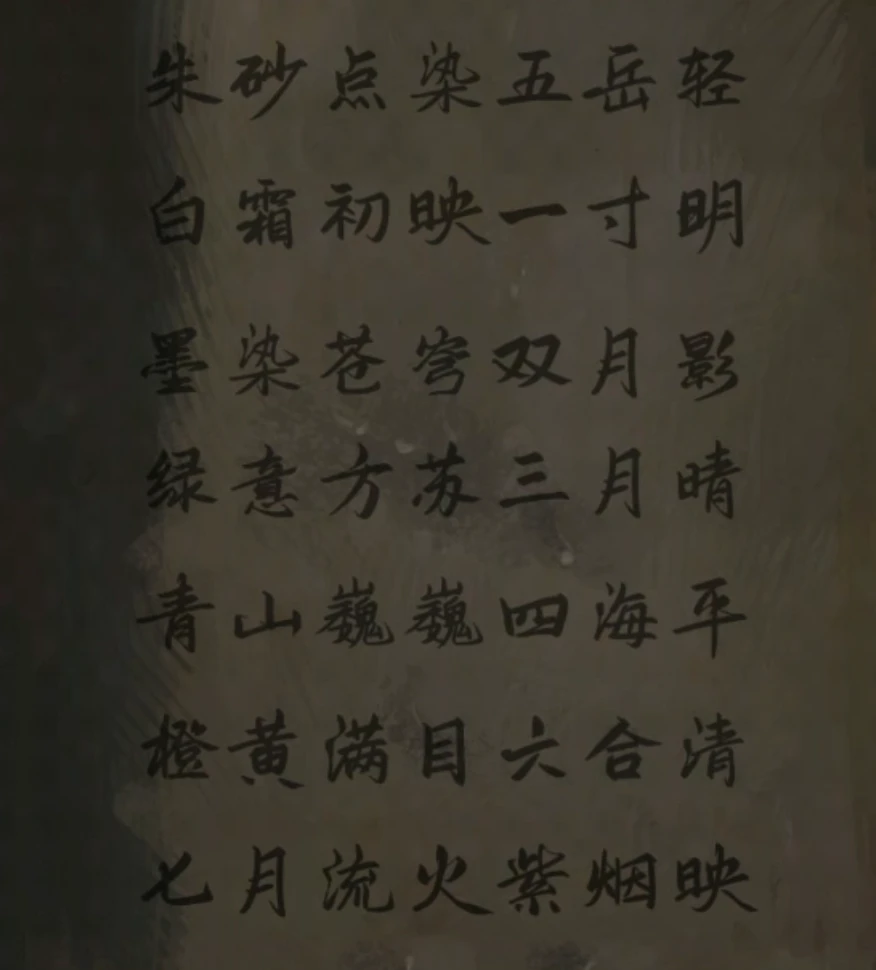 朱砂点染五岳轻
白霜初映一寸明
墨染苍穹双月影
绿意方苏三月晴
青山巍巍四海平
橙黄满目六合清
七月流火紫烟映